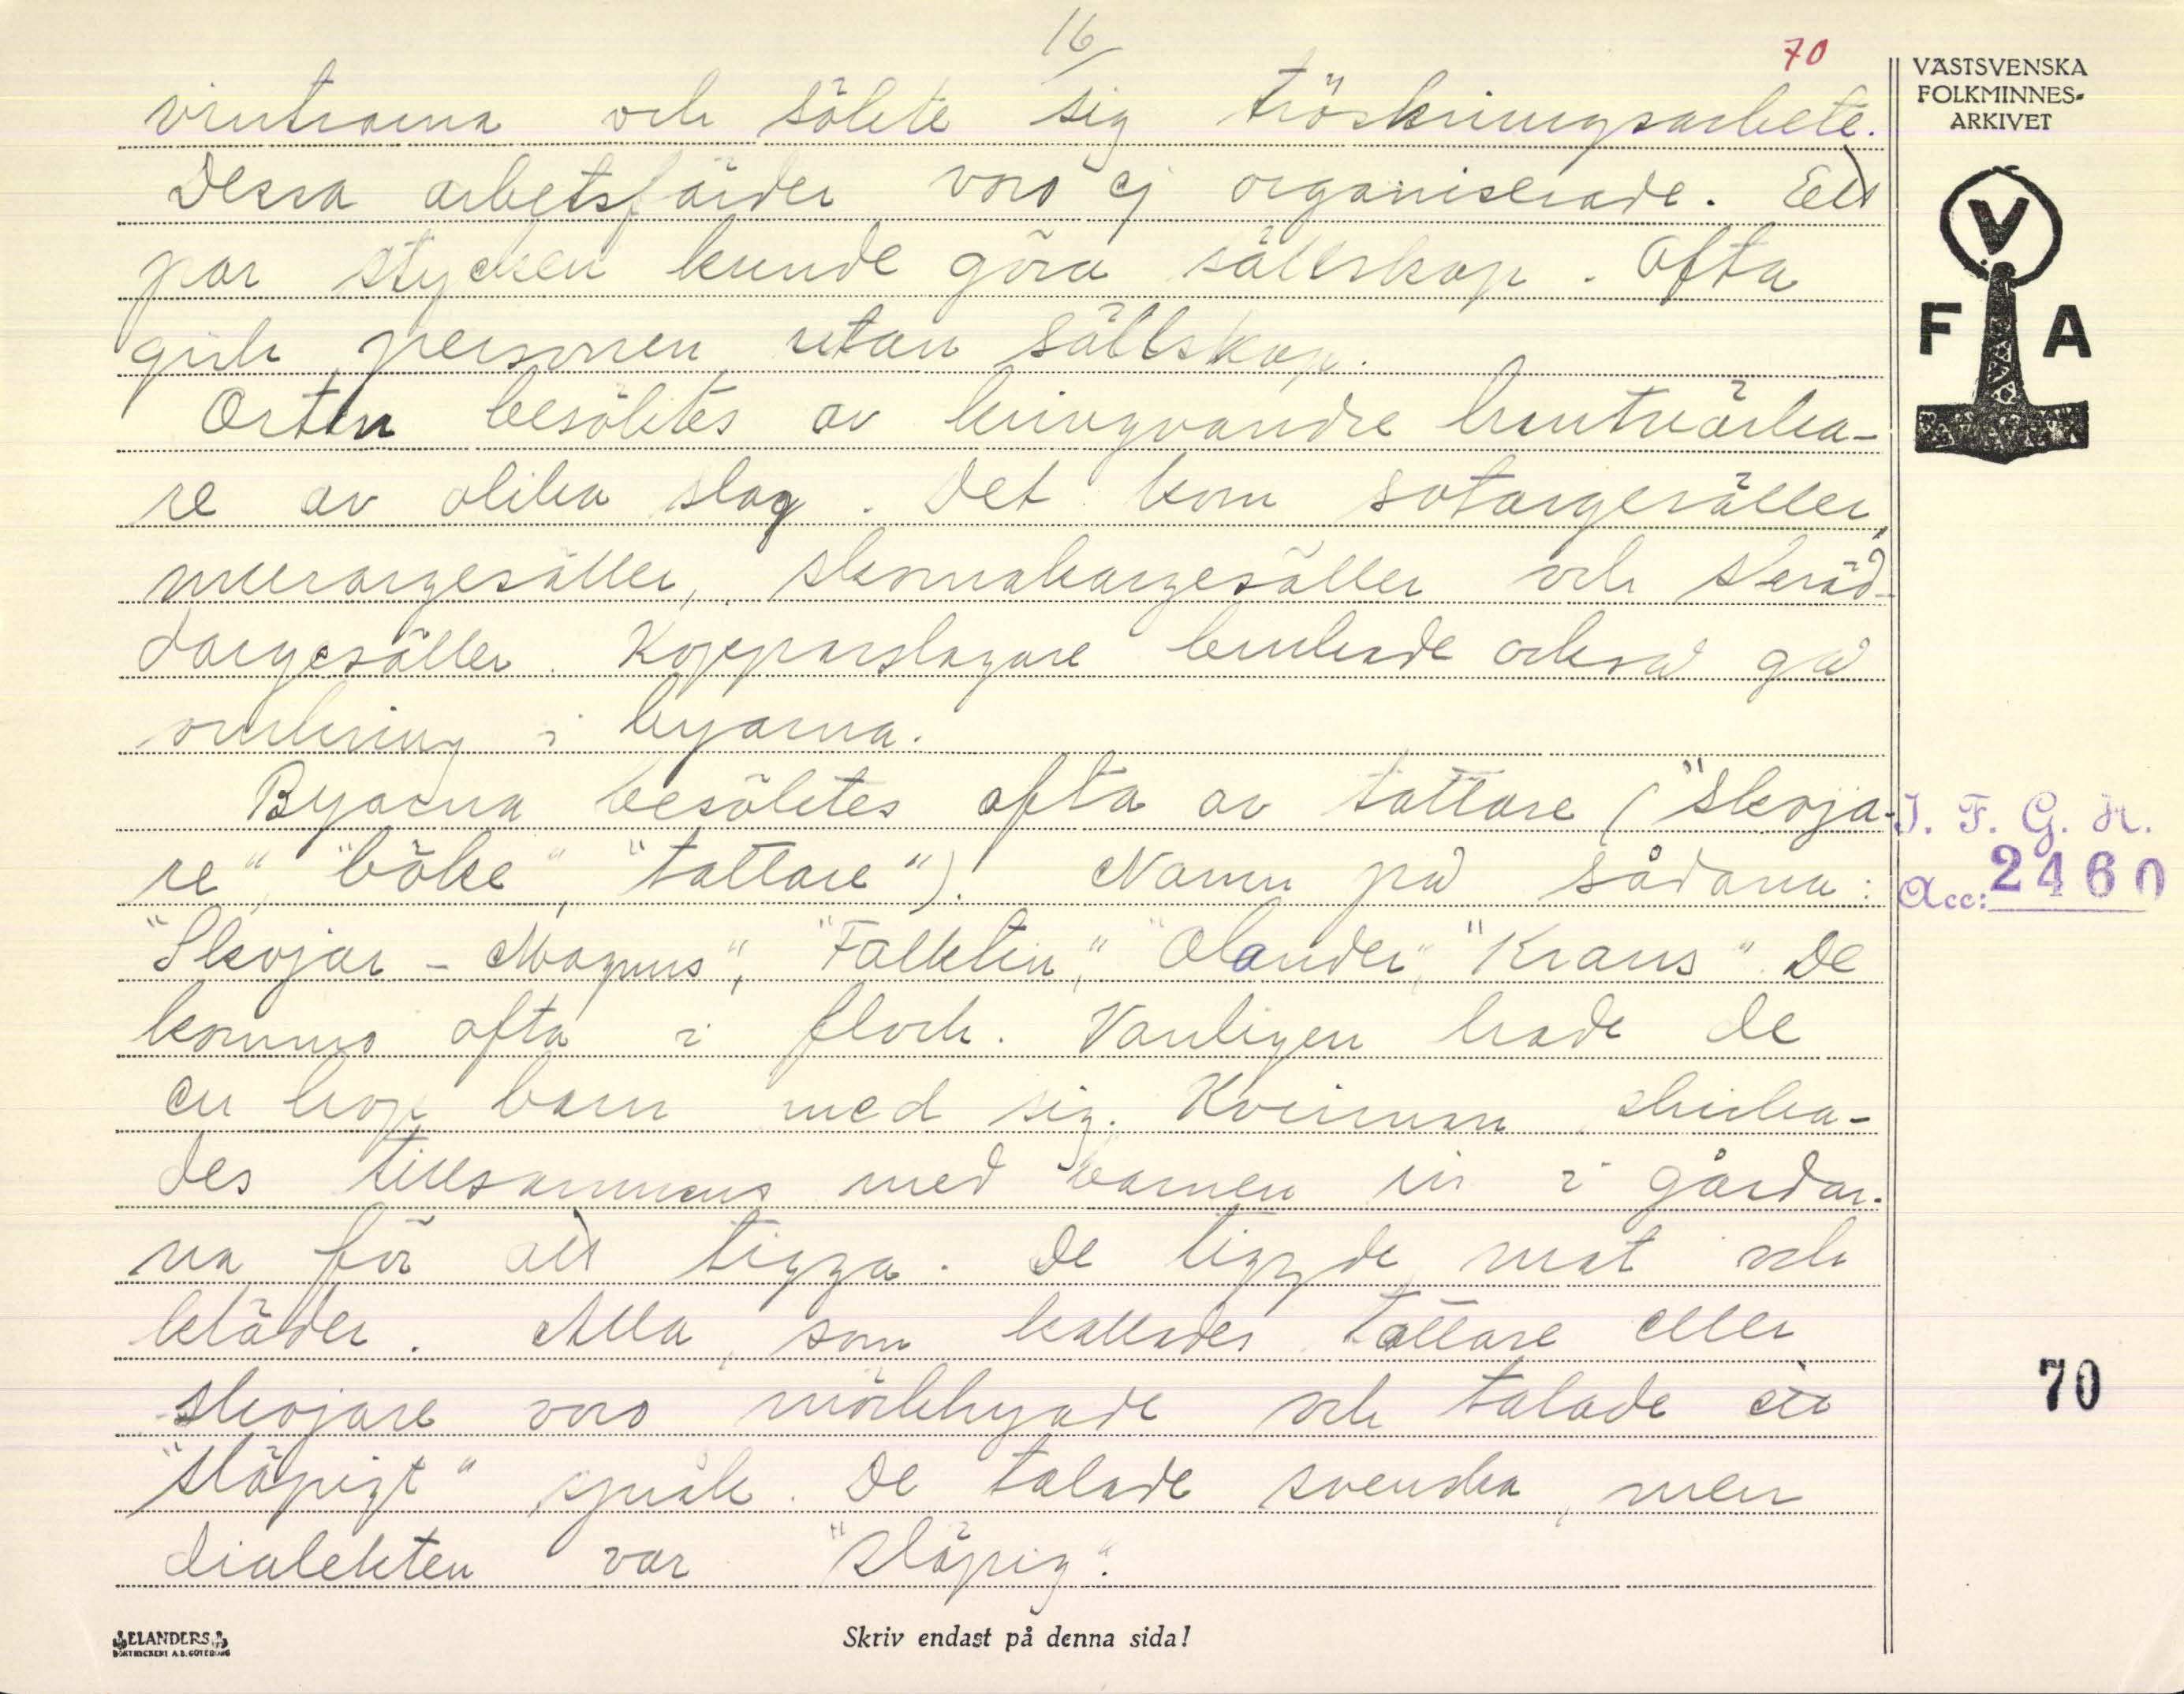 16/
70
vintrarna och sökte sig tröskningsarbete.
Dessa arbetsfärder voro ej organiserade. Ett
par stycken kunde göra sällskap. Ofta
gick personen utan sällskap.
Orten besöktes av kringvandre hantvärka-
re av olika slag. Det kom sotargesäller,
murargesäller, skomakargesäller och skräd-
dargesäller. Kopparslagare brukade också gå
omkring i byarna.
Byarna besöktes ofta av tattare ("skoja-
re", "böke", "tattare"). Namn på sådana:
"Skojar-Magnus", "Falktin", "Olander", "Kraus". De
kommo ofta i flock. Vanligen hade de
en hop barn med sig. Kvinnan skicka-
des tillsammans med barnen in i gårdar-
na för att tigga. De tiggde mat och
kläder. Alla, som kallades tattare eller
skojare voro mörkhyade och talade ett
"släpigt" språk. De talade svenska, men
dialekten var "släpig".
VÄSTSVENSKA
FOLKMINNES-
ARKIVET
V
F A
I. F. G. H.
Acc: 2460
70
ELANDERS
BOKTRYCKERI A.B. GÖTEBORG
Skriv endast på denna sida!